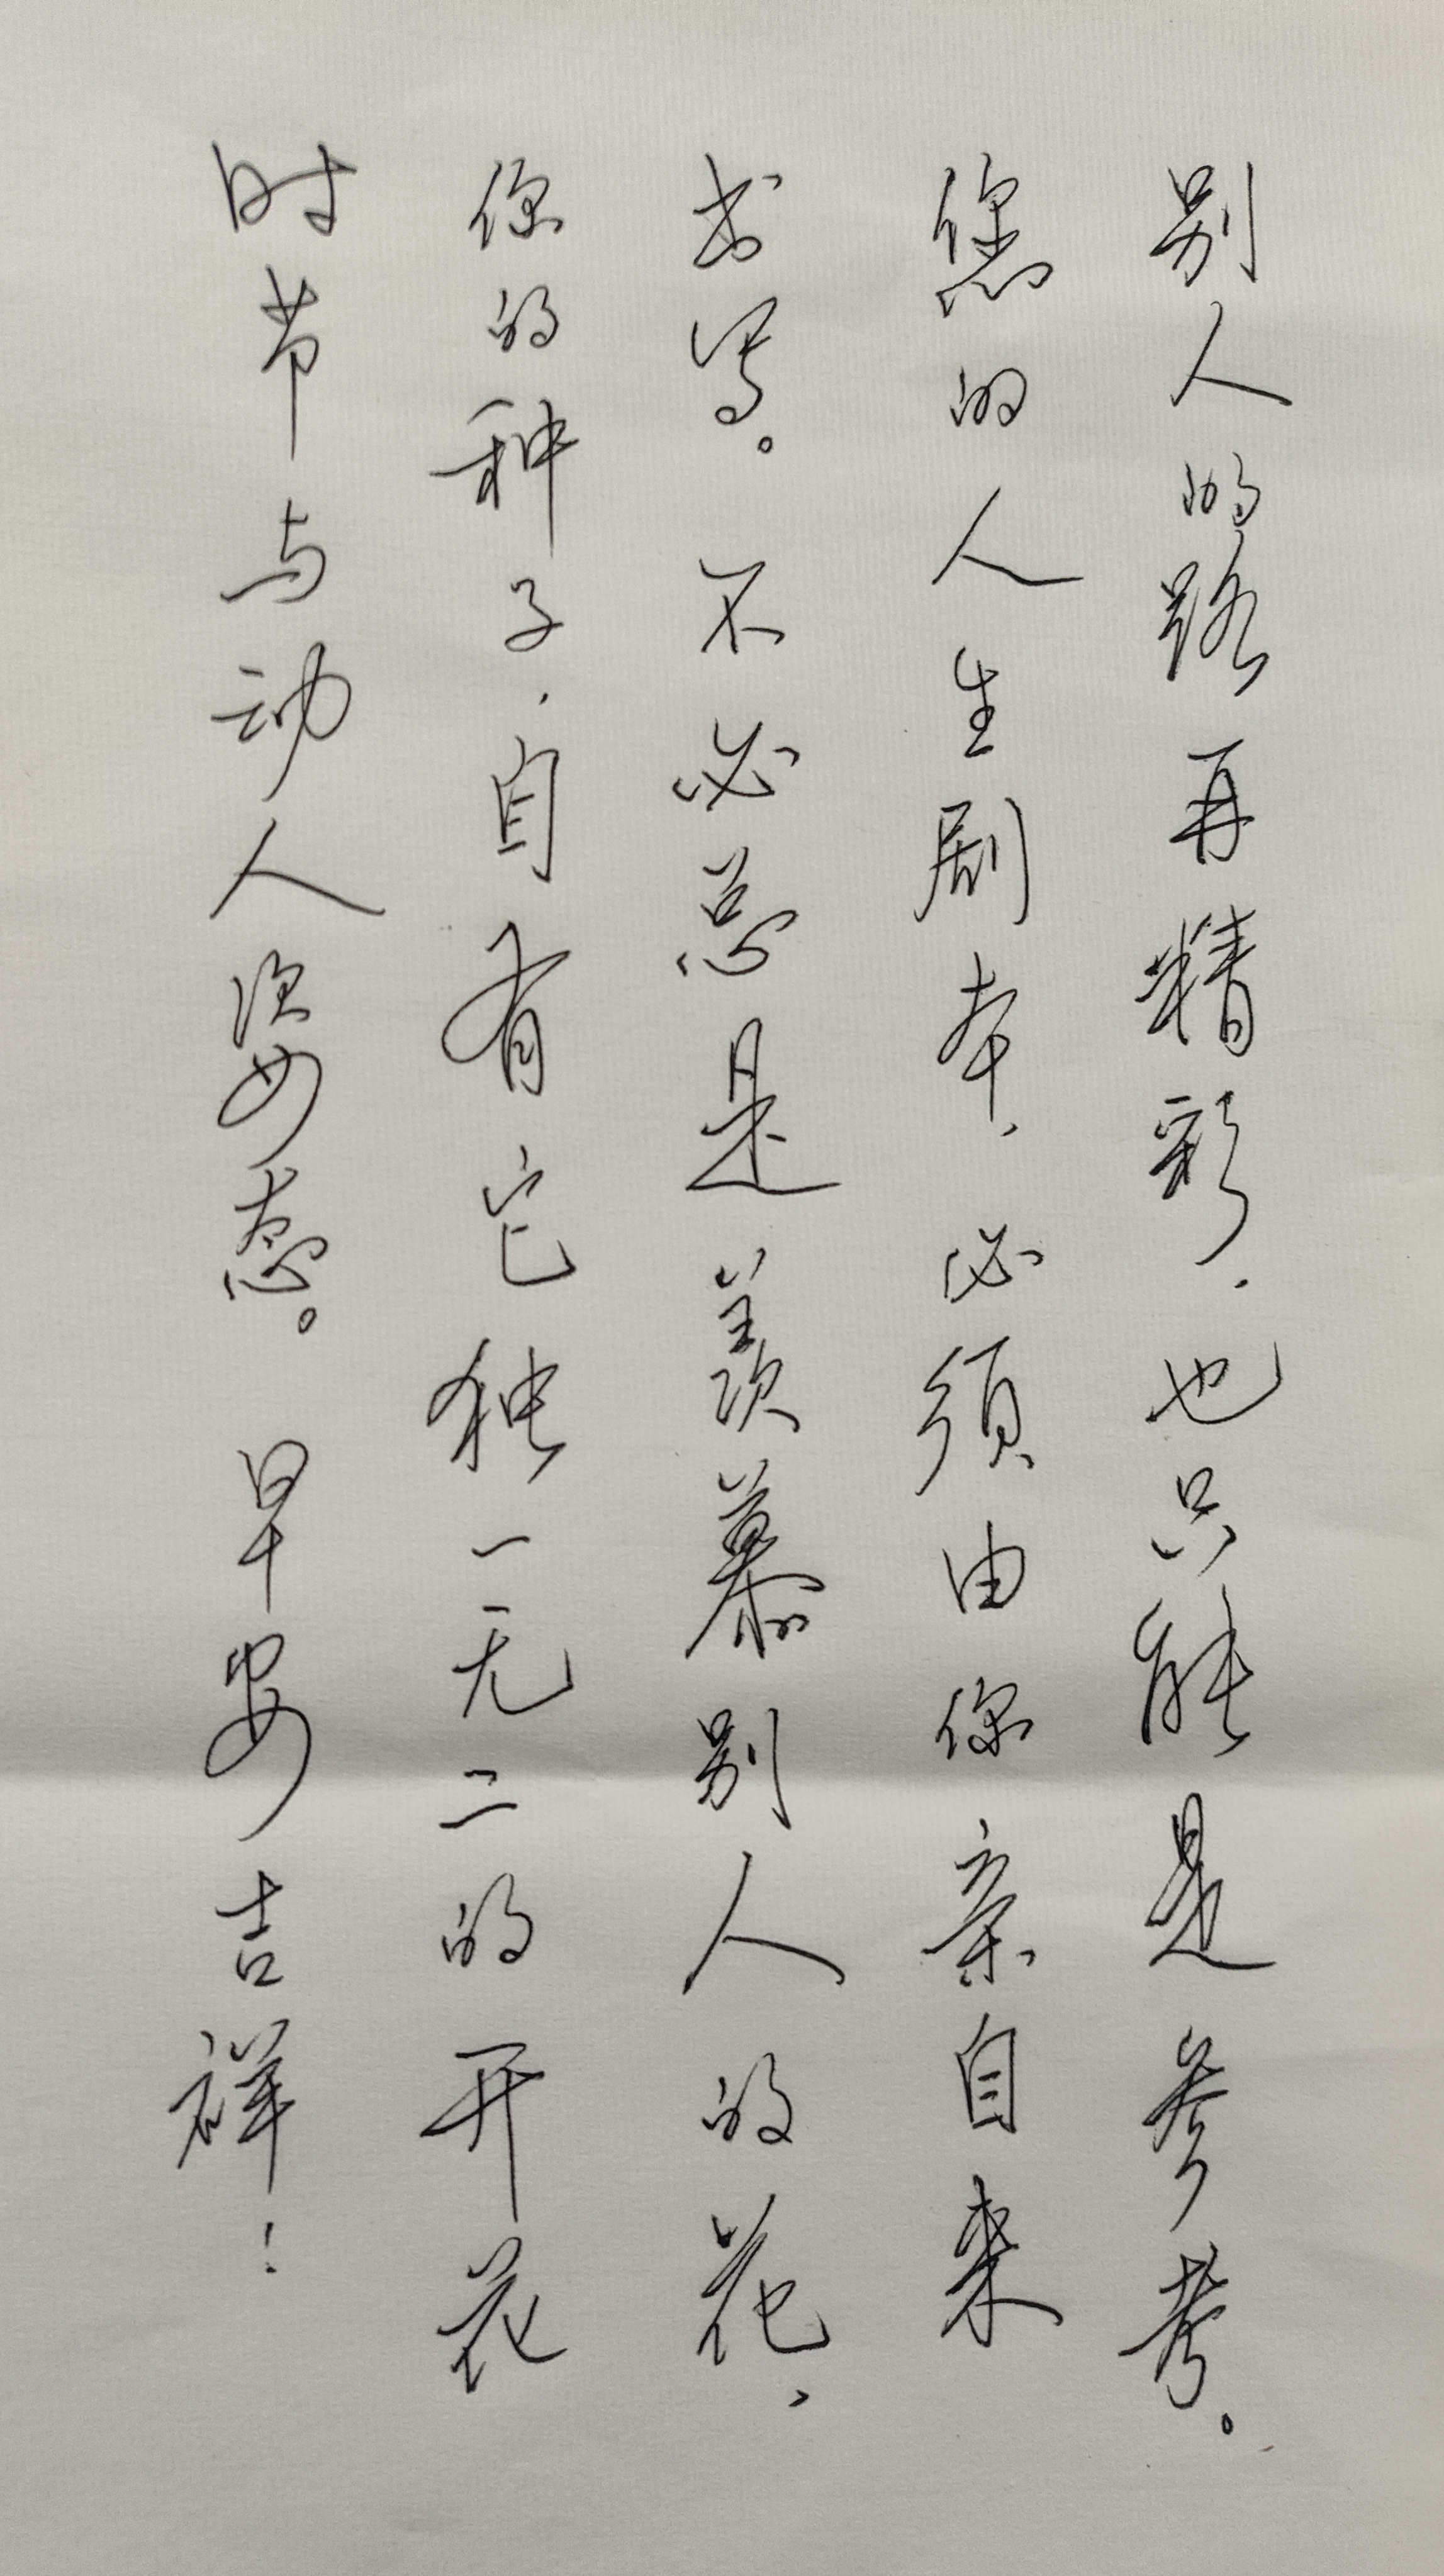 别人的路再精彩，也只能是参考。
您的人生剧本，必须由你亲自来
书写。不必总是羡慕别人的花，
你的种子，自有它独一无二的开花
时节与动人姿态。早安吉祥！